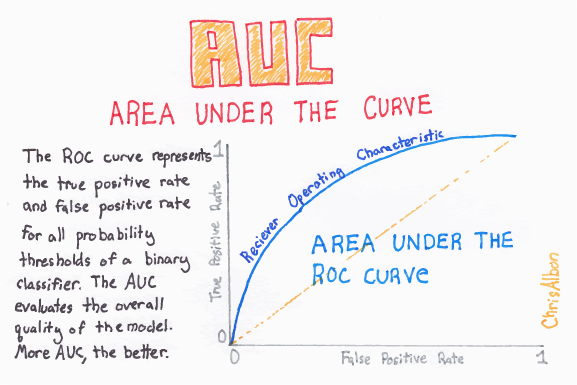 AUC
AREA UNDER THE CURVE
The ROC curve represents
the true positive rate
and false positive rate
for all probability
thresholds of a binary
classifier. The AUC
evaluates the overall
quality of the model.
More AUC, the better.
1
True Positive Rate
0
Reciever Operating Characteristic
AREA UNDER THE
ROC CURVE
0
False Positive Rate
1
ChrisAlbon